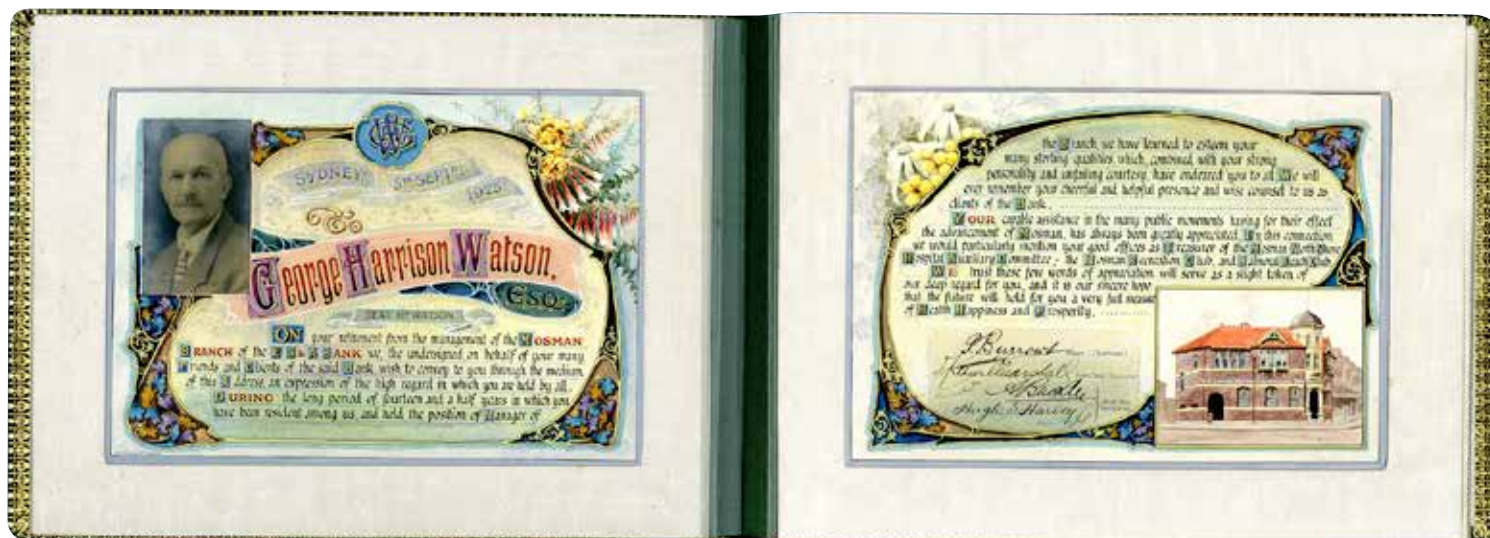 SYDNEY
To
George Harrison Watson,
ESQ.
DEAR MR WATSON
ON your retirement from the management of the MOSMAN
BRANCH of the E S & A BANK we, the undersigned on behalf of your many
Friends and Clients of the said Bank wish to convey to you through the medium
of this Address an expression of the high regard in which you are held by all.
DURING the long period of fourteen and a half years in which you
have been resident among us, and held the position of Manager of
the Branch, we have learned to esteem your
many sterling qualities, which, combined, with your strong
personality and unfailing courtesy, have endeared you to all. We will
ever remember your cheerful and helpful presence and wise counsel to us as
clients of the Bank.
YOUR capable assistance in the many public movements having for their effect
the advancement of Mosman, has always been greatly appreciated. In this connection
we would particularly mention your good offices as Treasurer of the Mosman North Shore
Hospital Auxiliary Committee; the Mosman Recreation Club, and Balmoral Beach Club.
WE trust these few words of appreciation will serve as a slight token of
our deep regard for you, and it is our sincere hope
that the future will hold for you a very full measure
of Health Happiness and Prosperity.
P. Burrows
Hugh Harvey